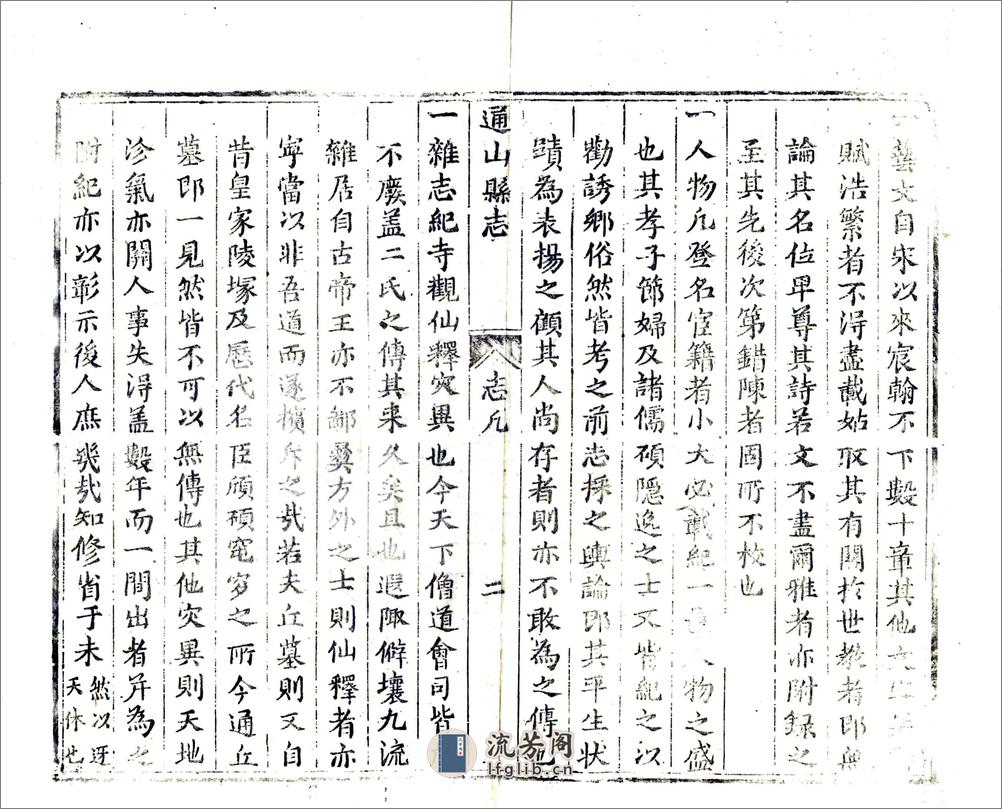 一藝文自宋以來宸翰不下數十章其他文
賦浩繁者不得盡載姑取其有關於世教者即無
論其名位卑尊其詩若文不盡爾雅者亦附錄之
至其先後次第錯陳者固所不校也
一人物凡登名宦籍者小大必載紀一邑人物之盛
也其孝子節婦及諸儒碩隱逸之士又皆紀之以
勸誘鄉俗然皆考之前志採之輿論即其平生狀
蹟為表揚之顧其人尚存者則亦不敢為之傳也
通山縣志
志凡
二
一雜志紀寺觀仙釋災異也今天下僧道會司皆
不廢盖二氏之傳其来久矣且也遐陬僻壤九流
雜居自古帝王亦不鄙棄方外之士則仙釋者亦
寧當以非吾道而遂擯斥之哉若夫丘墓則又自
昔皇家陵塚及歷代名臣碩窀穸之所今通丘
墓即一見然皆不可以無傳也其他災異則天地
沴氣亦關人事失得盖數年而一間出者并為之
附紀亦以彰示後人庶幾哉知修省于未然以迓
天休也
流芳阁
lfglib.cn